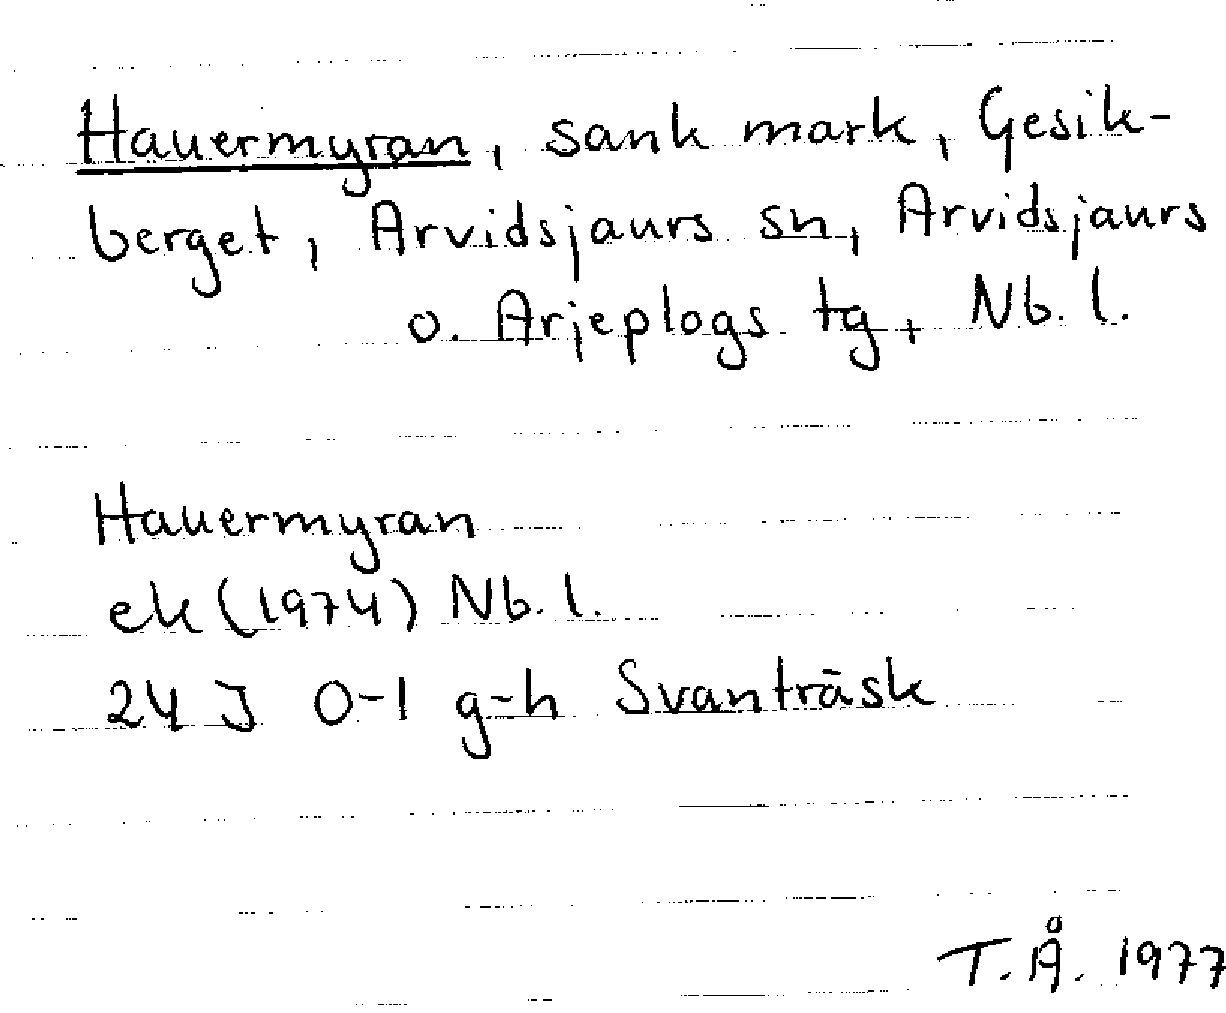 Hauermyran, sank mark, Gesik-
berget, Arvidsjaurs sn, Arvidsjaurs
o. Arjeplogs tg, Nb. l.
Hauermyran
ek (1974) Nb. l.
24 J 0-1 g-h Svanträsk
T.Å. 1977